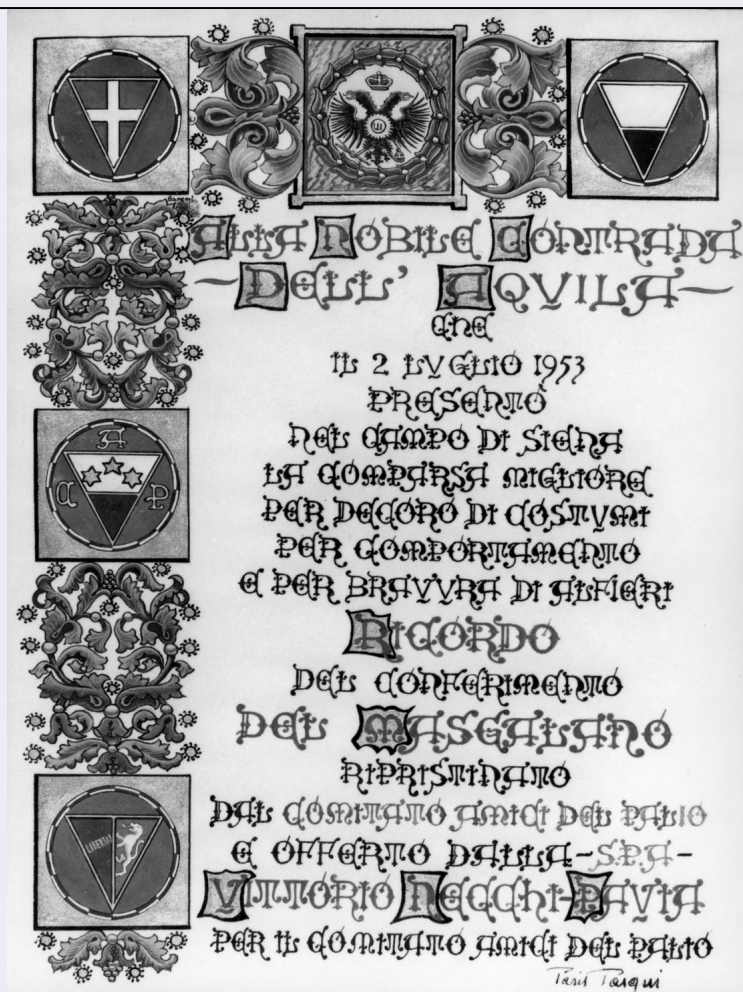 ALLA NOBILE CONTRADA
–DELL' AQVILA–
CHE
IL 2 LVGLIO 1953
PRESENTÒ
NEL CAMPO DI SIENA
LA COMPARSA MIGLIORE
PER DECORO DI COSTVMI
PER COMPORTAMENTO
E PER BRAVVRA DI ALFIERI
RICORDO
DEL CONFERIMENTO
DEL MASGALANO
RIPRISTINATO
DAL COMITATO AMICI DEL PALIO
E OFFERTO DALLA–S.P.A–
VITTORIO NECCHI–PAVIA
PER IL COMITATO AMICI DEL PALIO
A
C P
LIBERTAS